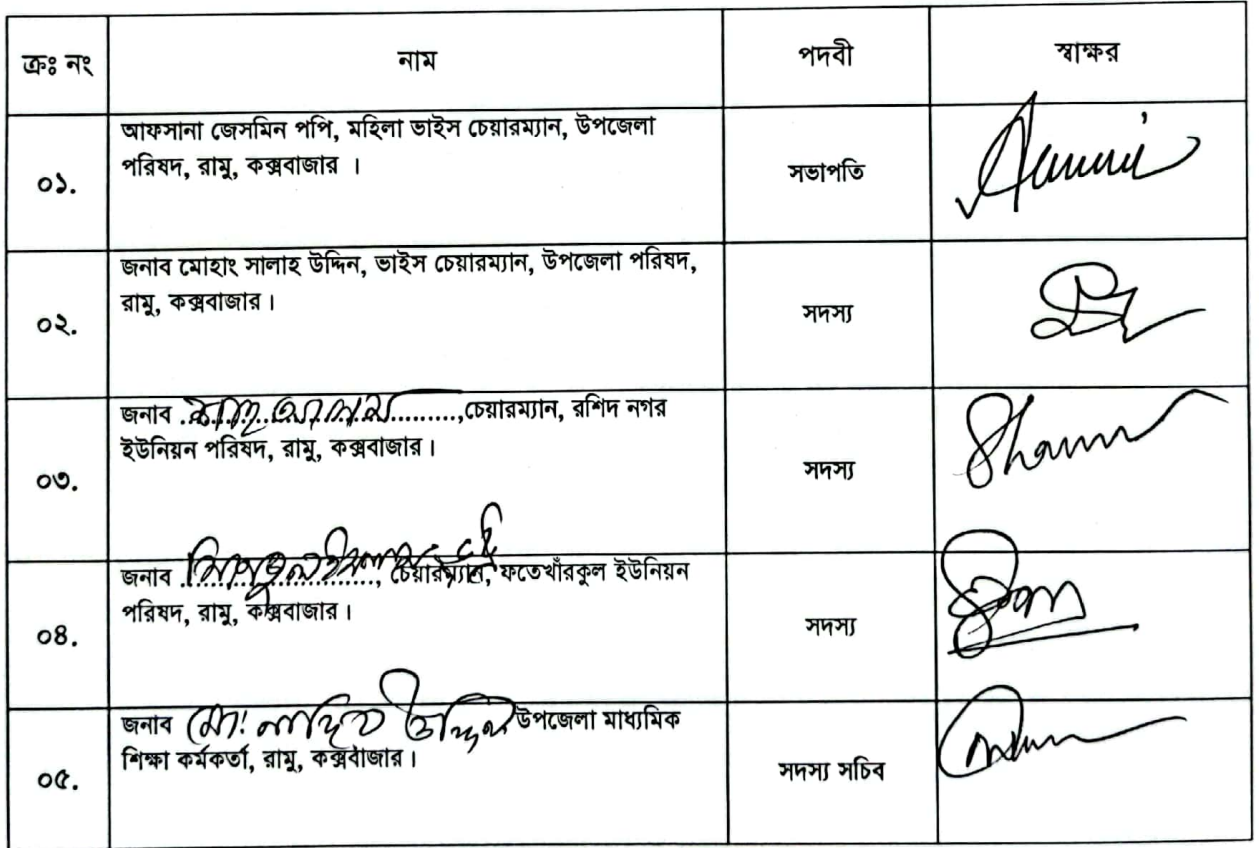 ক্রঃ নং নাম পদবী স্বাক্ষর
আফসানা জেসমিন পপি, মহিলা ভাইস চেয়ারম্যান, উপজেলা
পরিষদ, রামু, কক্সবাজার ।
০১. সভাপতি
জনাব মোহাং সালাহ উদ্দিন, ভাইস চেয়ারম্যান, উপজেলা পরিষদ,
রামু, কক্সবাজার।
০২. সদস্য
জনাব ,চেয়ারম্যান, রশিদ নগর
ইউনিয়ন পরিষদ, রামু, কক্সবাজার।
০৩. সদস্য
জনাব , চেয়ারম্যান, ফতেখাঁরকুল ইউনিয়ন
পরিষদ, রামু, কক্সবাজার।
০৪. সদস্য
জনাব মো: উদ্দিন উপজেলা মাধ্যমিক
শিক্ষা কর্মকর্তা, রামু, কক্সবাজার।
০৫. সদস্য সচিব